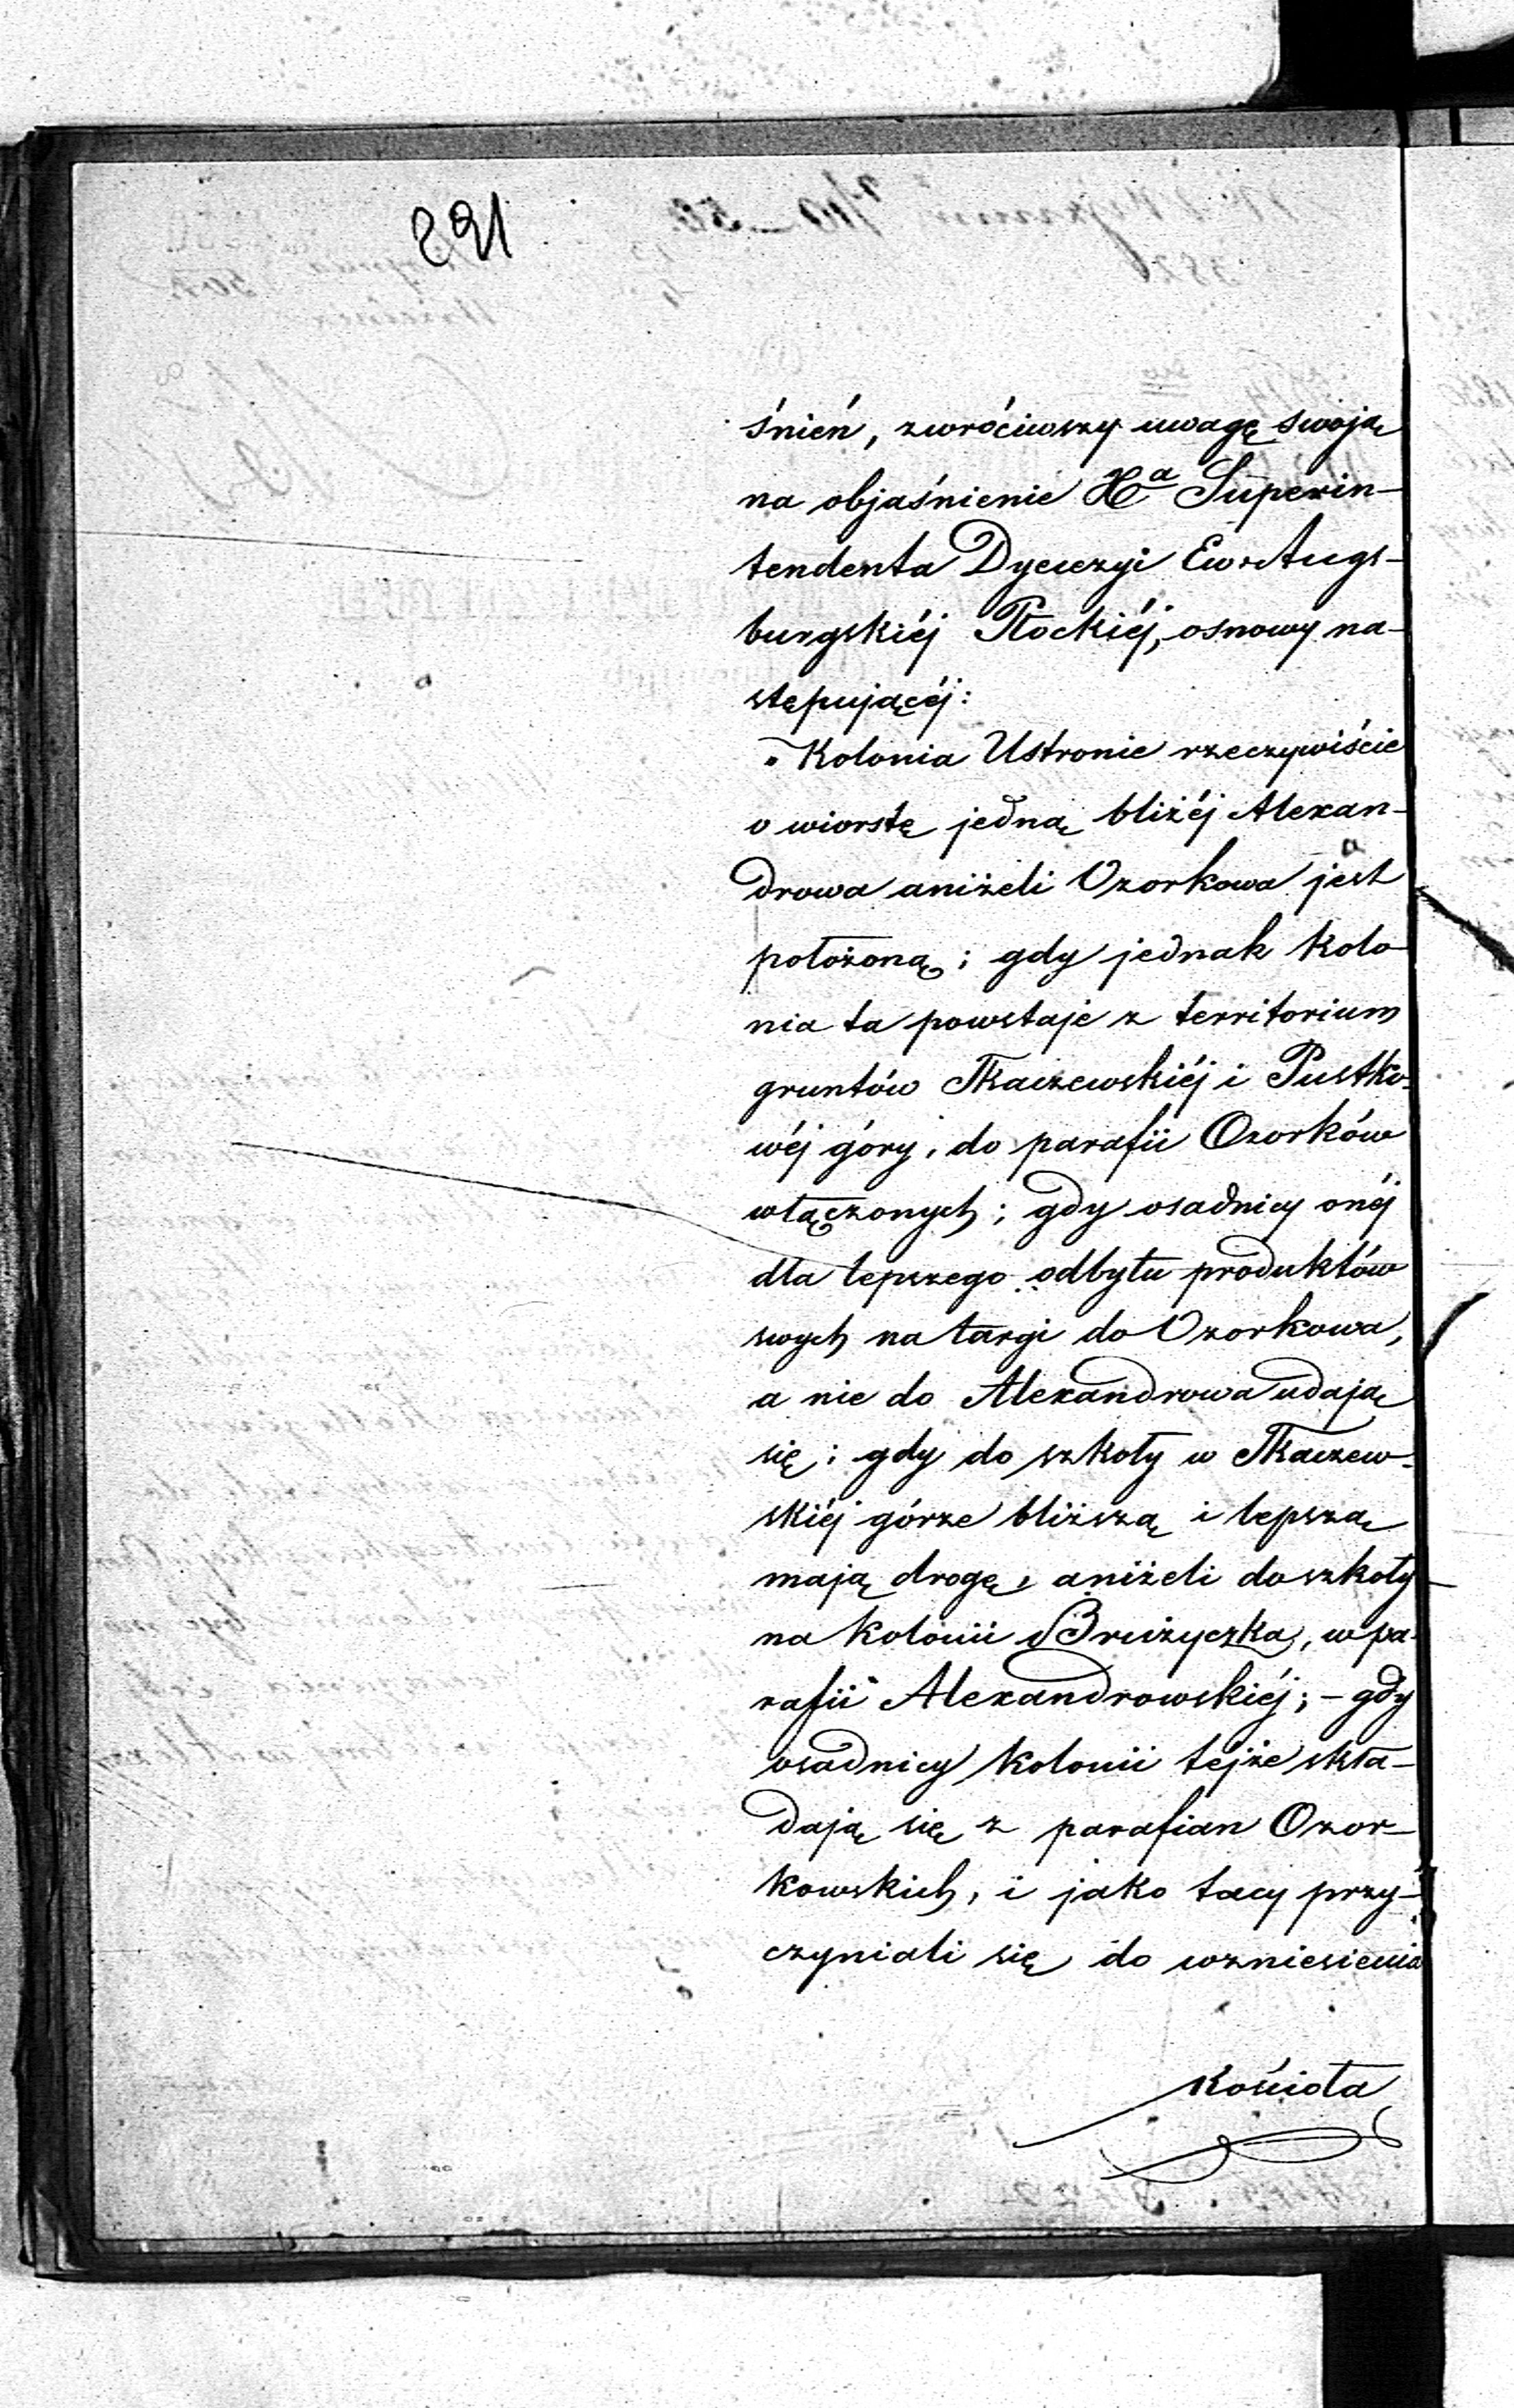 291
śnień, zwróciwszy uwagę swoją
na objaśnienie Xa Superin-
tendenta Dyecezyi Ew: Augs-
burgskiéj Płockiéj, osnowy na-
stępującéj:
„Kolonia Ustronie rzeczywiście
o wiorstę jedną bliżéj Alexan-
drowa aniżeli Ozorkowa jest
położoną; gdy jednak kolo-
nia ta powstaje z territorium
gruntów Tkaczewskiéj i Pustko-
wéj góry, do parafii Ozorków
włączonych; gdy osadnicy onéj
dla lepszego odbytu produktów
swych na targi do Ozorkowa,
a nie do Alexandrowa udają
się; gdy do szkoły w Tkaczew-
skiéj górze bliższą i lepszą
mają drogę, aniżeli do szkoły
na kolonii Brużyczka, w pa-
rafii Alexandrowskiéj; - gdy
osadnicy kolonii tejże skła-
dają się z parafian Ozor-
kowskich, i jako tacy przy-
czyniali się do wzniesienia
kościoła